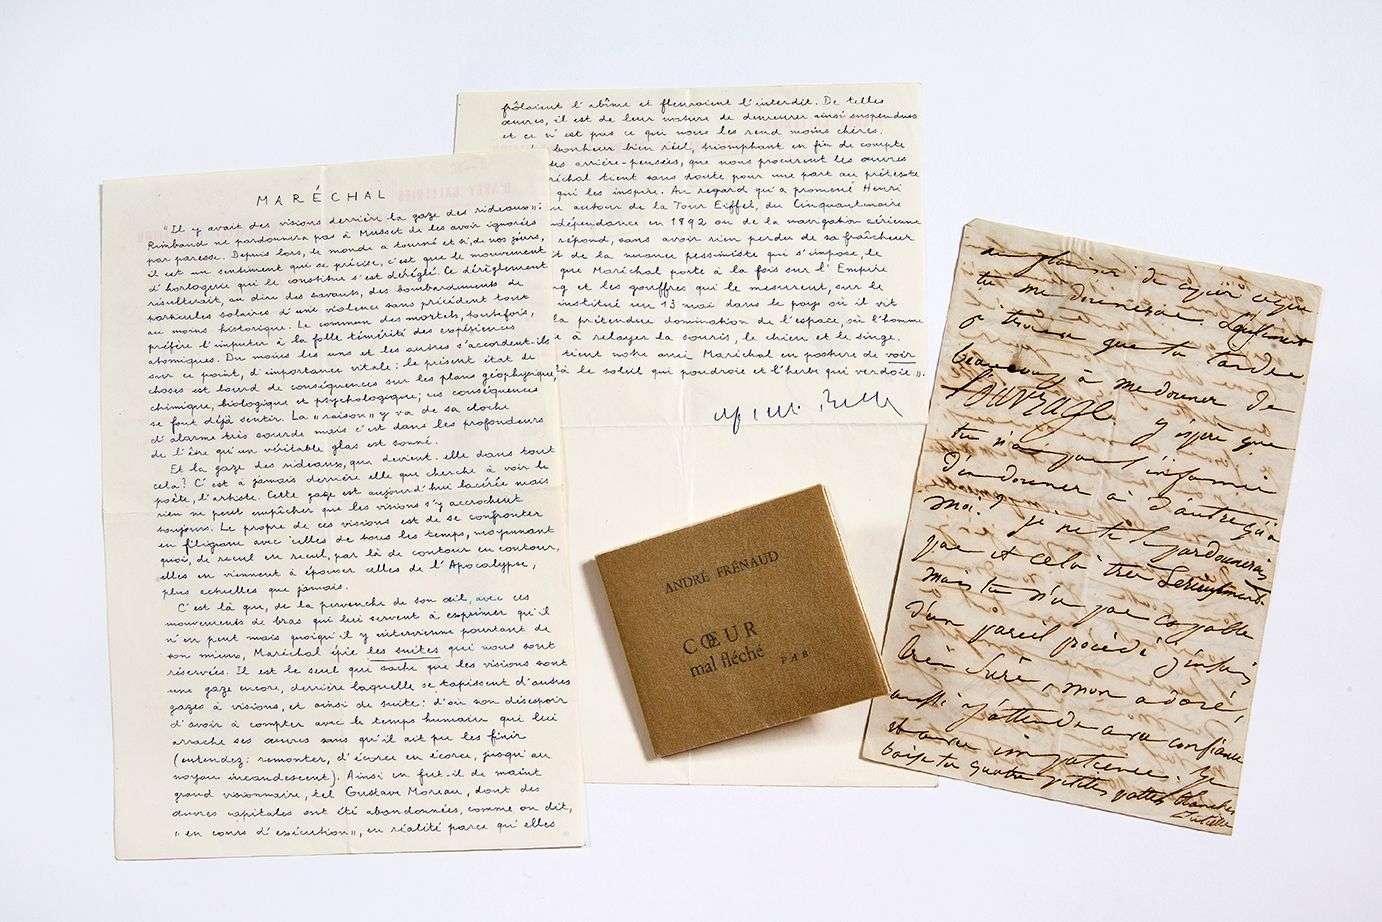 MARÉCHAL
"Il y avait des visions derrière la gaze des rideaux":
Rimbaud ne pardonnera pas à Musset de les avoir ignorées
par paresse. Depuis lors, le monde a tourné et si, de nos jours,
il est un sentiment qui se précise, c'est que le mouvement
d'horlogerie qui le constitue s'est déréglé. Ce dérèglement
résulterait, au dire des savants, des bombardements de
particules solaires d'une violence sans précédent tout
au moins historique. Le commun des mortels, toutefois,
préfère l'imputer à la folle témérité des expériences
atomiques. Du moins les uns et les autres s'accordent-ils
sur ce point, d'importance vitale: le présent état de
choses est lourd de conséquences sur les plans géophysique,
chimique, biologique et psychologique; ces conséquences
se font déjà sentir. La "raison" y va de sa cloche
d'alarme très sourde mais c'est dans les profondeurs
de l'être qu'un véritable glas est sonné.
Et la gaze des rideaux, que devient-elle dans tout
cela? C'est à jamais derrière elle que cherche à voir le
poète, l'artiste. Cette gaze est aujourd'hui lacérée mais
rien ne peut empêcher que les visions s'y accrochent
toujours. Le propre de ces visions est de se confronter
en filigrane avec celles de tous les temps, moyennant
quoi, de recul en recul, par là de contour en contour,
elles en viennent à épouser celles de l'Apocalypse,
plus actuelles que jamais.
C'est là que, de la pervenche de son œil, avec ces
mouvements de bras qui lui servent à exprimer qu'il
n'en peut mais quoiqu'il y intervienne pourtant de
son mieux, Maréchal épie les suites qui nous sont
réservées. Il est le seul qui sache que les visions sont
une gaze encore, derrière laquelle se tapissent d'autres
gazes à visions, et ainsi de suite: d'où son désespoir
d'avoir à compter avec le temps humain qui lui
arrache ses œuvres sans qu'il ait pu les finir
(entendez: remonter, d'écorce en écorce, jusqu'au
noyau incandescent). Ainsi en fut-il de maint
grand visionnaire, tel Gustave Moreau, dont des
œuvres capitales ont été abandonnées, comme on dit,
"en cours d'exécution", en réalité parce qu'elles
frôlaient l'abîme et fleuraient l'interdit. De telles
œuvres, il est de leur nature de demeurer ainsi suspendues
et ce n'est pas ce qui nous les rend moins chères.
bonheur bien réel, triomphant en fin de compte
arrière-pensées, que nous procurent les œuvres
tient sans doute pour une part au prétexte
qui les inspire. Au regard qu'a promené Henri
autour de la Tour Eiffel, du Cinquantenaire
en 1892 ou de la navigation aérienne
répond, sans avoir rien perdu de sa fraîcheur
de la nuance pessimiste qui s'impose, le
que Maréchal porte à la fois sur l'Empire
et les gouffres qui le mesurent, sur le
institué un 13 mai dans le pays où il vit
la prétendue domination de l'espace, où l'homme
à relayer la souris, le chien et le singe.
tient notre ami Maréchal en posture de voir
le soleil qui poudroie et l'herbe qui verdoie".
ANDRÉ FRÉNAUD
CŒUR
mal fléché
PAB
tu me
je trouve que tu tardes
beaucoup à me donner de
l'ouvrage. j'espère que
tu n'a pas l'infamie
d'en donner à d'autre qu'à
moi? je ne te le pardonnerais
pas et cela très serieusement
mais tu n'es pas capable
d'un pareil procédé j'en suis
bien sure, mon adoré,
aussi j'attends avec confiance
et avec impatience. Je
baise tes quatre petites pattes blanches